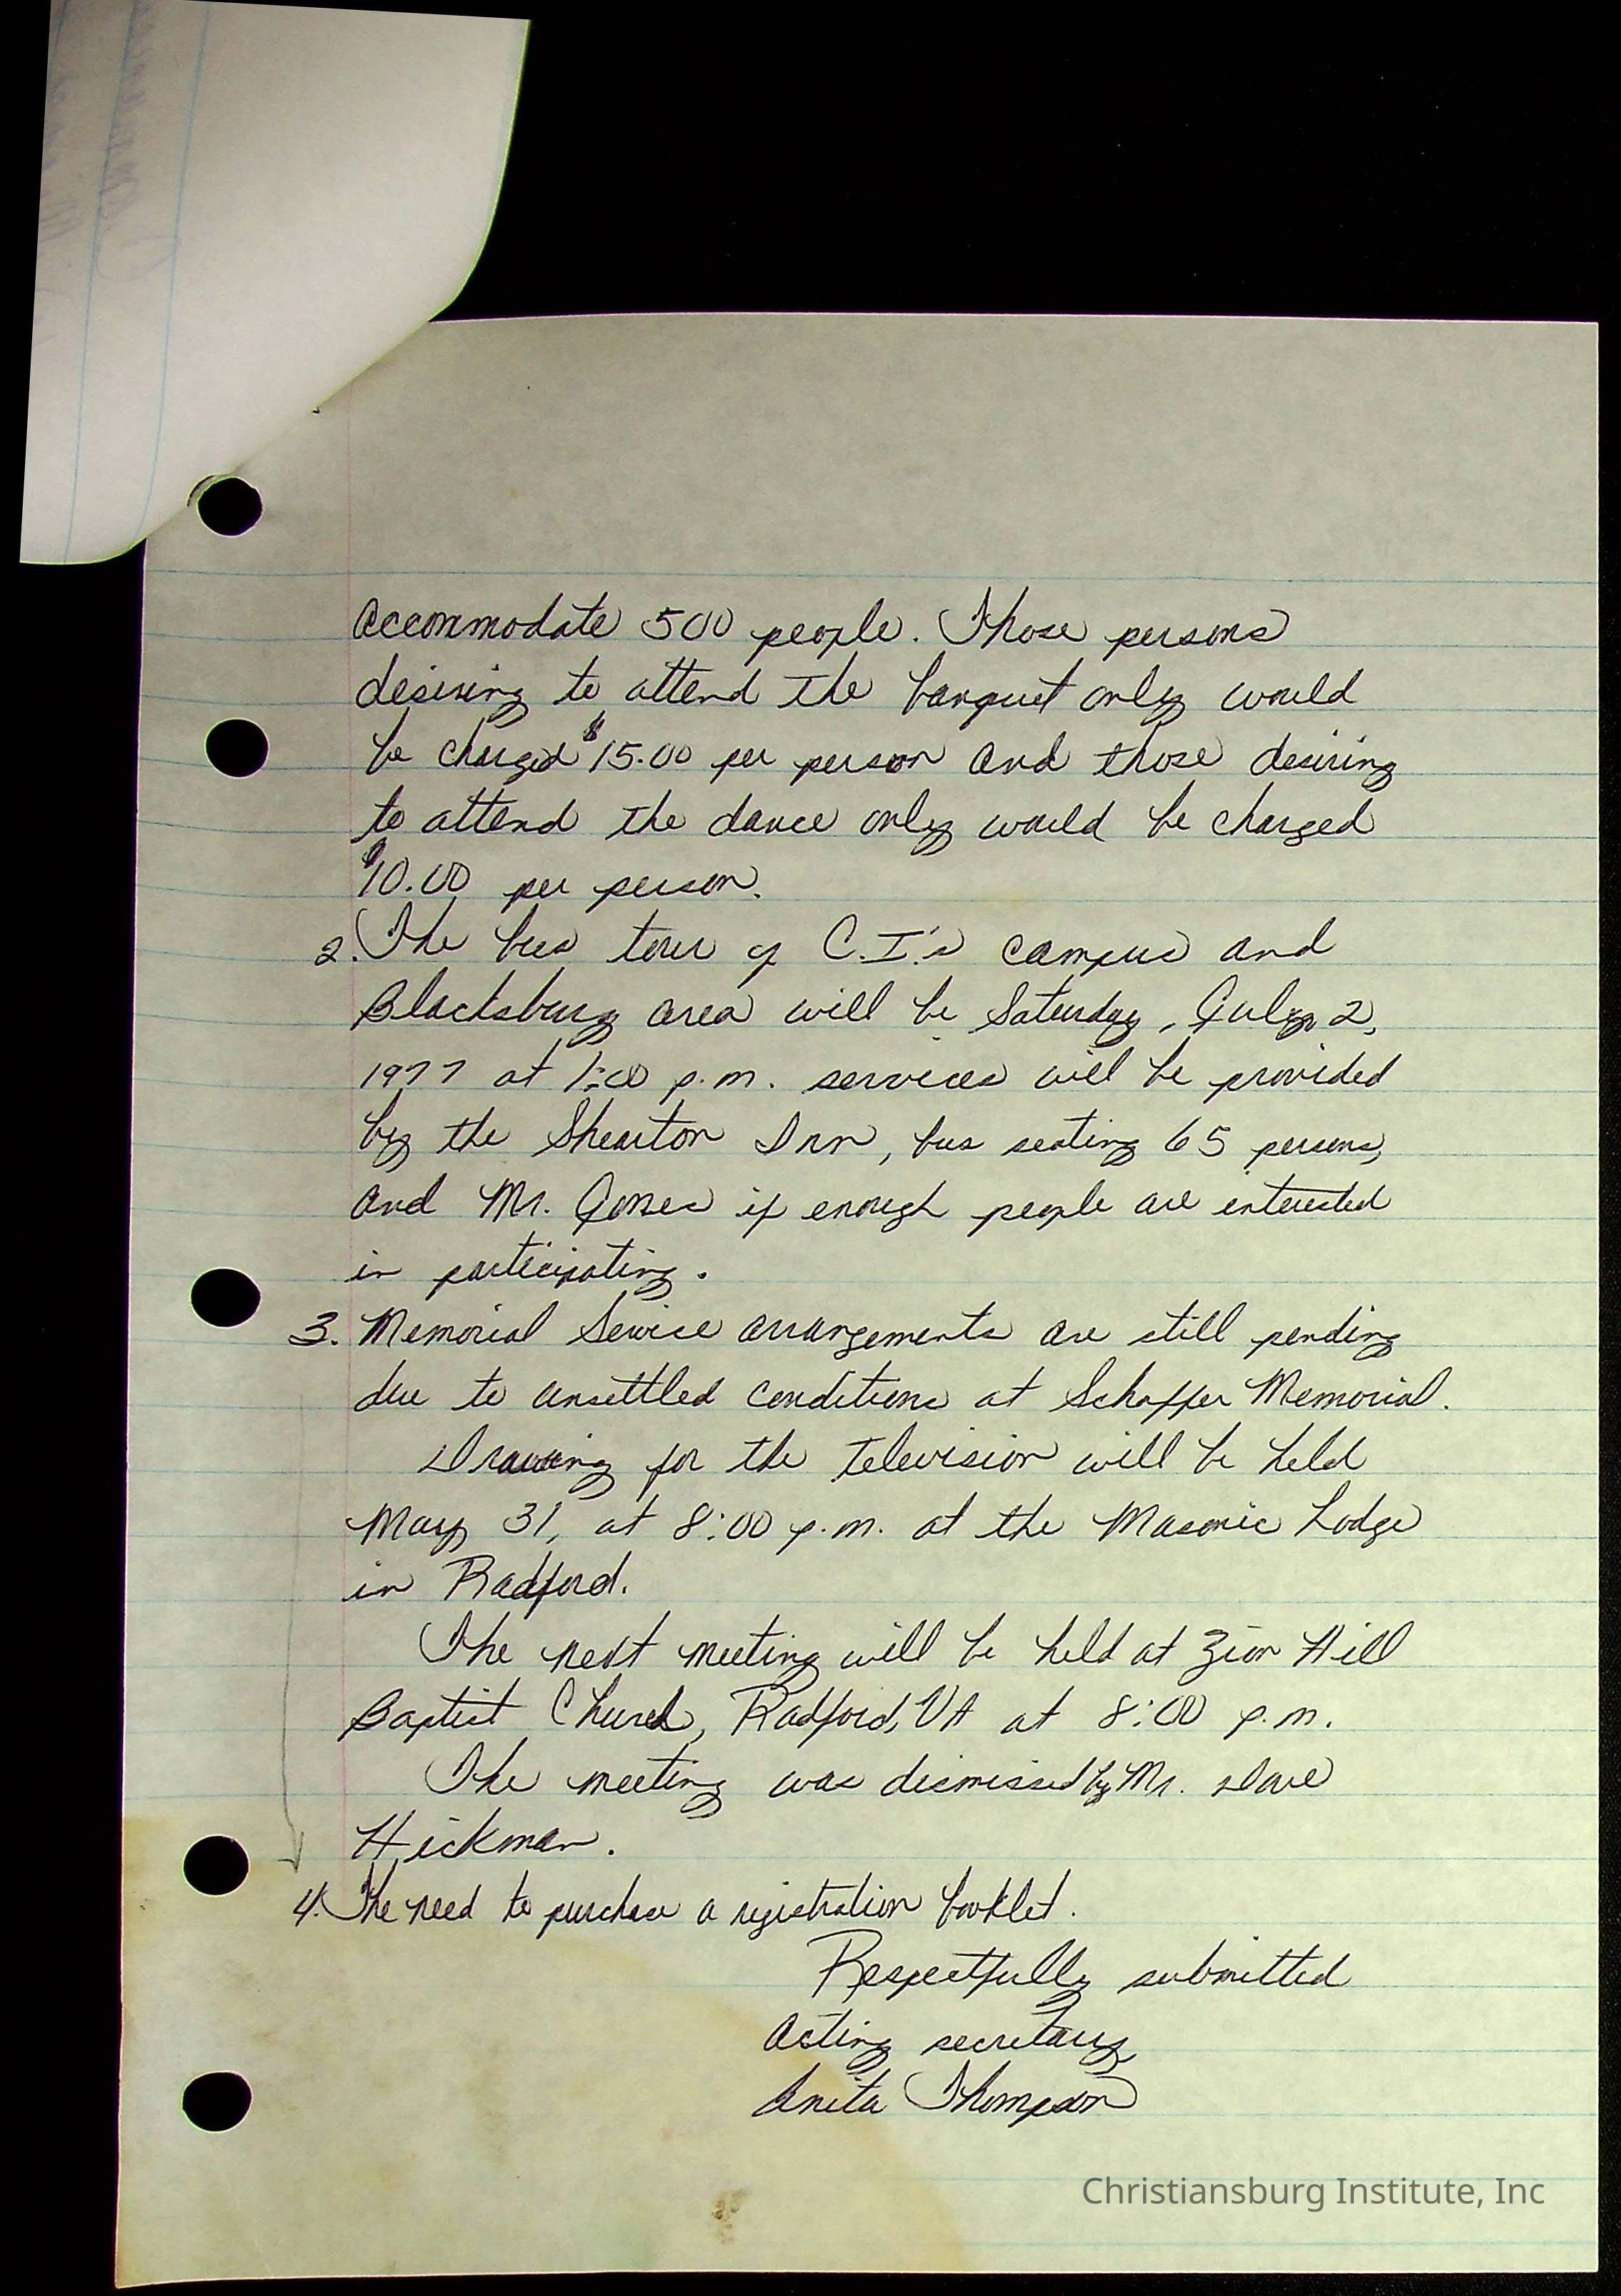 accommodate 500 people. Those persons
desiring to attend the banquet only would
be charged $15.00 per person and those desiring
to attend the dance only would be charged
$10.00 per person.
2. The bus tour of C.I.'s campus and
Blacksburg area will be Saturday, July 2,
1977 at 1:00 p.m. services will be provided
by the Shearton Inn, bus seating 65 persons,
and Mr. Jones if enough people are interested
in participating.
3. Memorial Service arrangements are still pending
due to unsettled conditions at Schaffer Memorial.
Drawing for the television will be held
May 31, at 8:00 p.m. at the Masonic Lodge
in Radford.
The next meeting will be held at Zion Hill
Baptist Church, Radford, VA at 8:00 p.m.
The meeting was dismissed by Mr. Dave
Hickman.
4. The need to purchase a registration booklet.
Respectfully submitted
Acting secretary,
Anita Thompson
Christiansburg Institute, Inc